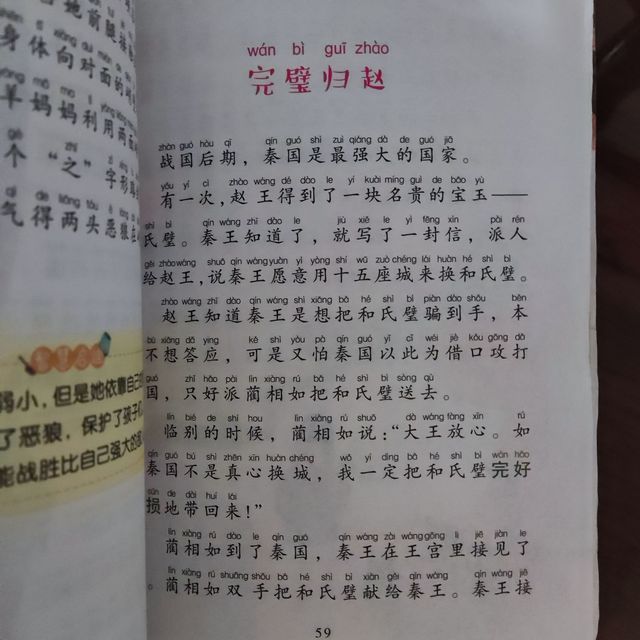 地前腿
身体向对面的
羊妈妈利用两
gè zhī zì
个“之”字形
气得两头恶狼
弱小，但是她依靠自己
了恶狼，保护了孩子
能战胜比自己强大的
wán bì guī zhào
完璧归赵
zhàn guó hòu qī qín guó shì zuì qiáng dà de guó jiā
战国后期，秦国是最强大的国家。
yǒu yí cì zhào wáng dé dào le yí kuài míng guì de bǎo yù
有一次，赵王得到了一块名贵的宝玉——
shì bì qín wáng zhī dào le jiù xiě le yì fēng xìn pài rén
氏璧。秦王知道了，就写了一封信，派人
gěi zhào wáng shuō qín wáng yuàn yì yòng shí wǔ zuò chéng lái huàn hé shì bì
给赵王，说秦王愿意用十五座城来换和氏璧。
zhào wáng zhī dào qín wáng shì xiǎng bǎ hé shì bì piàn dào shǒu běn
赵王知道秦王是想把和氏璧骗到手，本
bù xiǎng dā yìng kě shì yòu pà qín guó yǐ cǐ wéi jiè kǒu gōng dǎ
不想答应，可是又怕秦国以此为借口攻打
guó zhǐ hǎo pài lìn xiāng rú bǎ hé shì bì sòng qù
国，只好派蔺相如把和氏璧送去。
lín bié de shí hou lìn xiāng rú shuō dà wáng fàng xīn rú
临别的时候，蔺相如说：“大王放心。如
qín guó bú shì zhēn xīn huàn chéng wǒ yí dìng bǎ hé shì bì wán hǎo
秦国不是真心换城，我一定把和氏璧完好
sǔn de dài huí lái
损地带回来！”
lìn xiāng rú dào le qín guó qín wáng zài wáng gōng lǐ jiē jiàn le
蔺相如到了秦国，秦王在王宫里接见了
lìn xiāng rú shuāng shǒu bǎ hé shì bì xiàn gěi qín wáng qín wáng jiē
。蔺相如双手把和氏璧献给秦王。秦王接
59